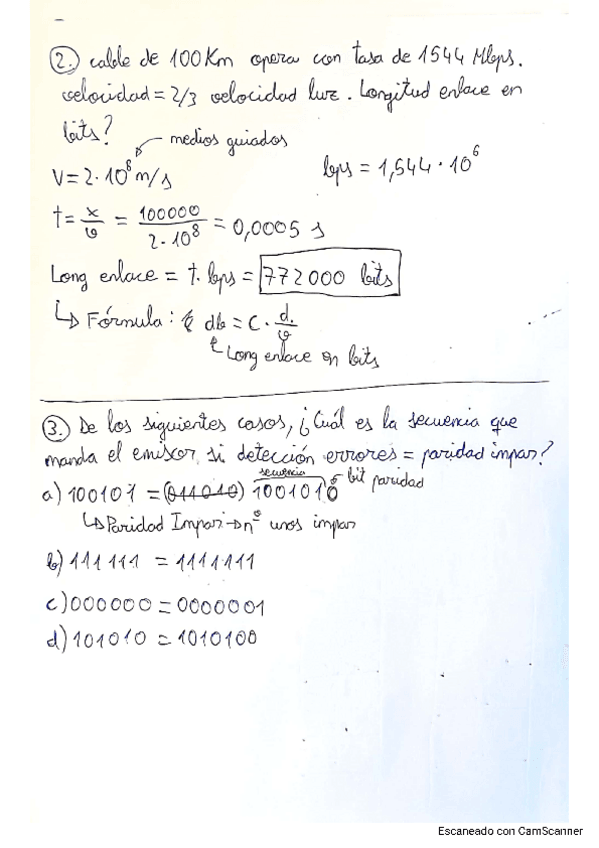 2. cable de 100 Km opera con tasa de 1544 Mbps.
velocidad = 2/3 velocidad luz. Longitud enlace en
bits?
medios guiados
V = 2·10⁸ m/s
bps = 1,544·10⁶
t = x/v = 100000/2·10⁸ = 0,0005 s
Long enlace = t. bps = 772000 bits
↳ Fórmula: db = C · d/v
Long enlace en bits
3. De los siguientes casos, ¿Cuál es la secuencia que
manda el emisor, si detección errores = paridad impar?
secuencia
bit paridad
a) 100101 = (011010) 1001010
↳ Paridad Impar → nº unos impar
b) 111 111 = 1111111
c) 000000 = 0000001
d) 101010 = 1010100
Escaneado con CamScanner